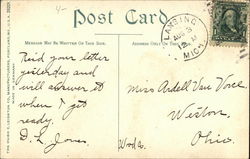 Post Card
MESSAGE MAY BE WRITTEN ON THIS SIDE.
ADDRESS ONLY ON THIS
LANSING,
MICH
Rec'd your letter
yesterday and
will answer it
when I get
ready.
D. L. Jones
Miss Ardell Van Vorce
Weston,
Ohio.